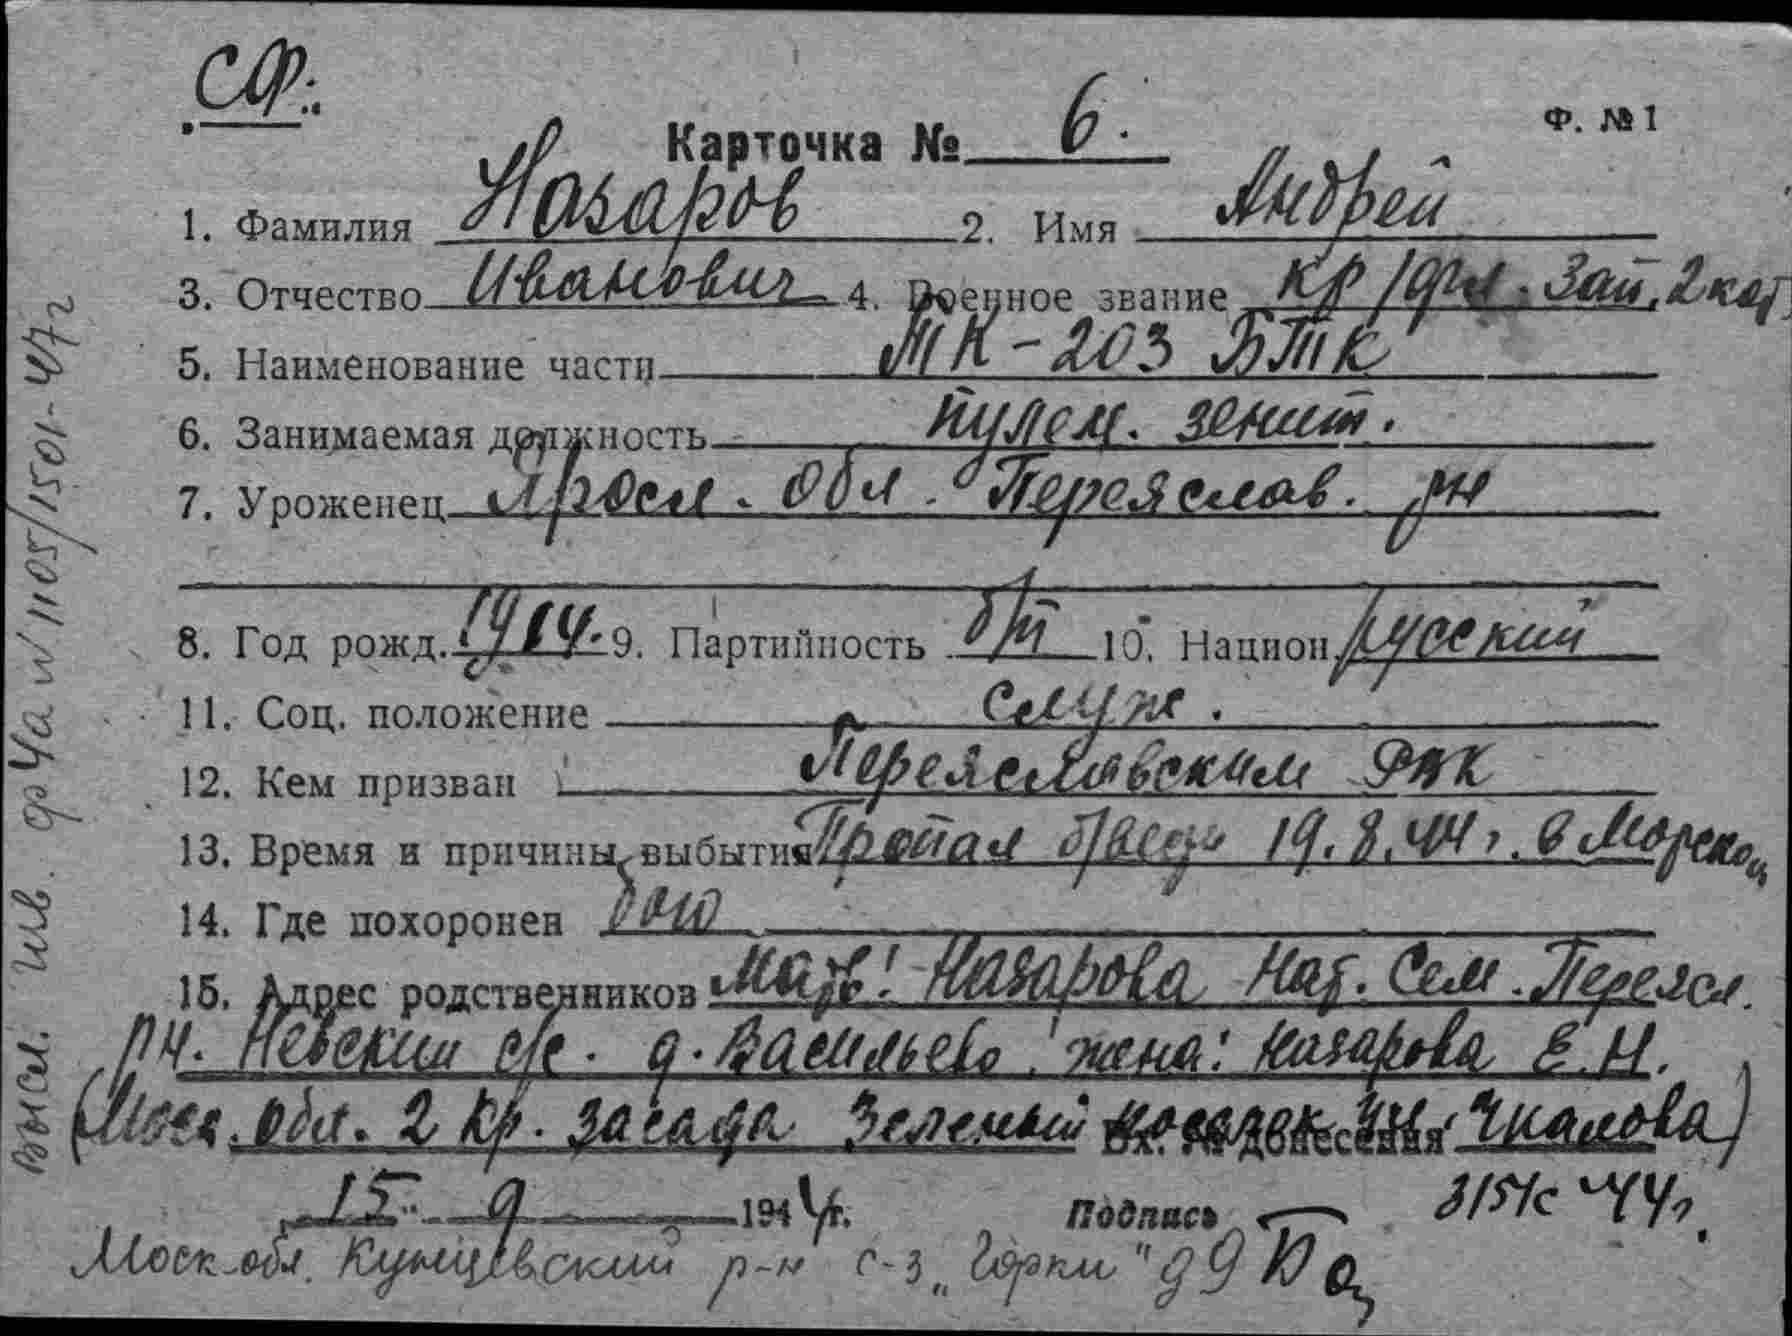 СФ.
Карточка № 6.
Ф. № 1
1. Фамилия Назаров 2. Имя Андрей
3. Отчество Иванович 4. Военное звание кр/фл. Зап. 2 кат
5. Наименование части ТК-203 БТК
6. Занимаемая должность пулем. зенит.
7. Уроженец Яросл. обл. Переяслав. рн
8. Год рожд. 1914. 9. Партийность б/п 10. Национ. русский
11. Соц. положение служ.
12. Кем призван Переяславским РВК
13. Время и причины выбытия Пропал б/вести 19.8.44 г. в Морском
14. Где похоронен бою
15. Адрес родственников Мать: Назарова Нат. Сем. Переясл.
рн. Невский с/с. д. Васильево жена: Назарова Е.Н.
(Моск. обл. 2 кр. засада Зеленый поселок им. Чкалова)
Вх. № донесения
15. 9 1944 г. Подпись 315/с 44 г.
Моск обл. Кунцевский р-н с-з „Горки" д 9
высл. изв. ф 4а № 1105/1501-47 г